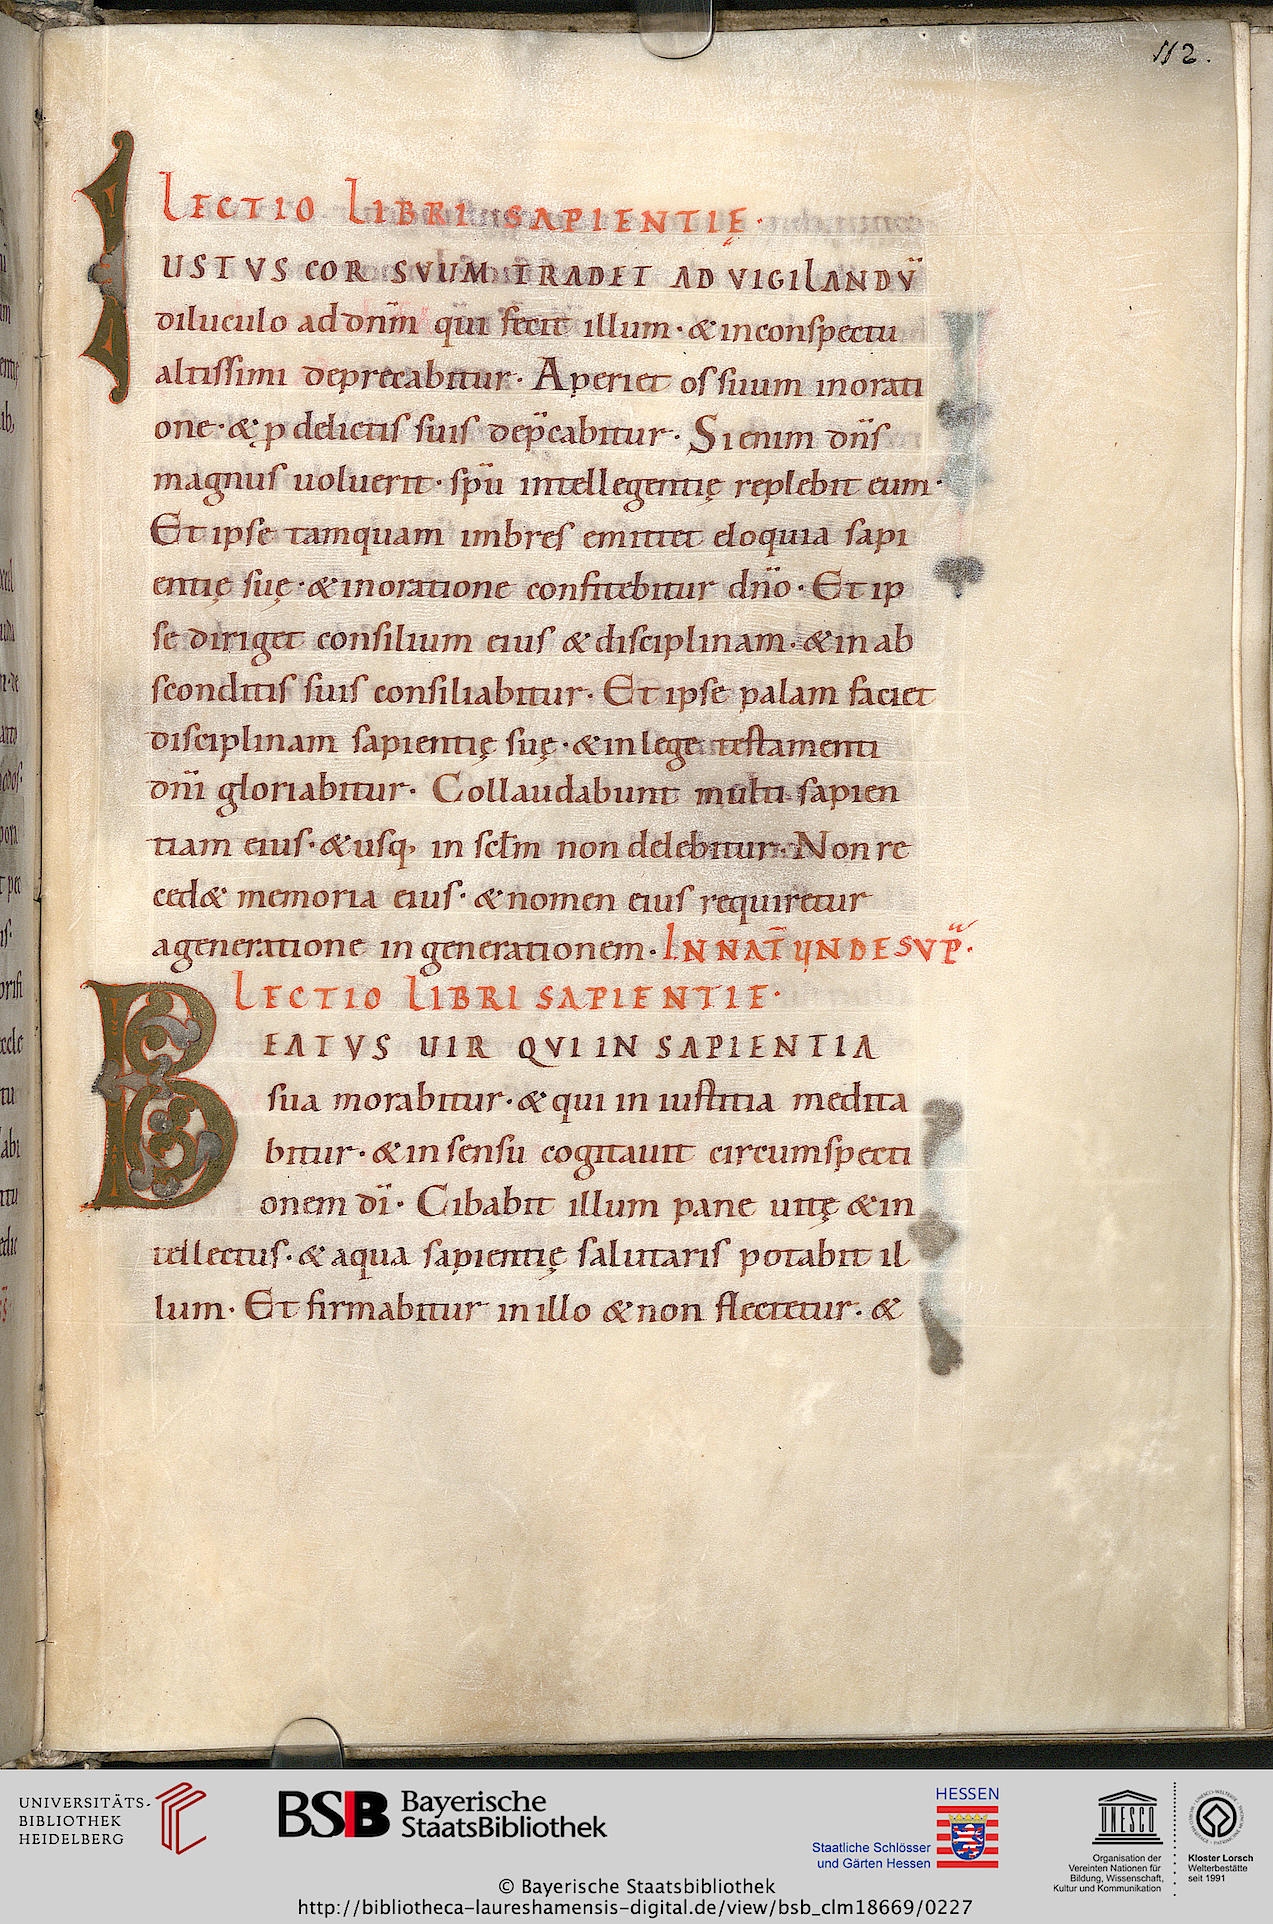 112.
LECTIO LIBRI SAPIENTIĘ·
IUSTVS COR SVUM TRADET AD VIGILANDŪ
diluculo ad dnm̄ qui fecit illum· & in conspectu
altissimi deprecabitur· Aperiet os suum in orati
one· & p delictis suis dep̄cabitur· Si enim dn̄s
magnus uoluerit· spū intellegentię replebit eum·
Et ipse tamquam imbres emittet eloquia sapi
entię suę· & in oratione confitebitur dn̄o· Et ip
se diriget consilium eius & disciplinam· & in ab
sconditis suis consiliabitur· Et ipse palam faciet
disciplinam sapientię suę· & in lege testamenti
dn̄i gloriabitur· Collaudabunt multi sapien
tiam eius· & usq, in sclm̄ non delebitur· Non re
ced& memoria eius· & nomen eius requiretur
a generatione in generationem· IN NAT̄ UNDE SVP̄·
LECTIO LIBRI SAPIENTIE·
BEATVS UIR QVI IN SAPIENTIA
sua morabitur· & qui in iustitia medita
bitur· & in sensu cogitauit circumspecti
onem dī· Cibabit illum pane uitę & in
tellectus· & aqua sapientię salutaris potabit il
lum· Et firmabitur in illo & non flectetur· &
UNIVERSITÄTS-
BIBLIOTHEK
HEIDELBERG
BSB Bayerische
StaatsBibliothek
HESSEN
Staatliche Schlösser
und Gärten Hessen
UNESCO
Organisation der
Vereinten Nationen für
Bildung, Wissenschaft,
Kultur und Kommunikation
Kloster Lorsch
Welterbestätte
seit 1991
© Bayerische Staatsbibliothek
http://bibliotheca-laureshamensis-digital.de/view/bsb_clm18669/0227